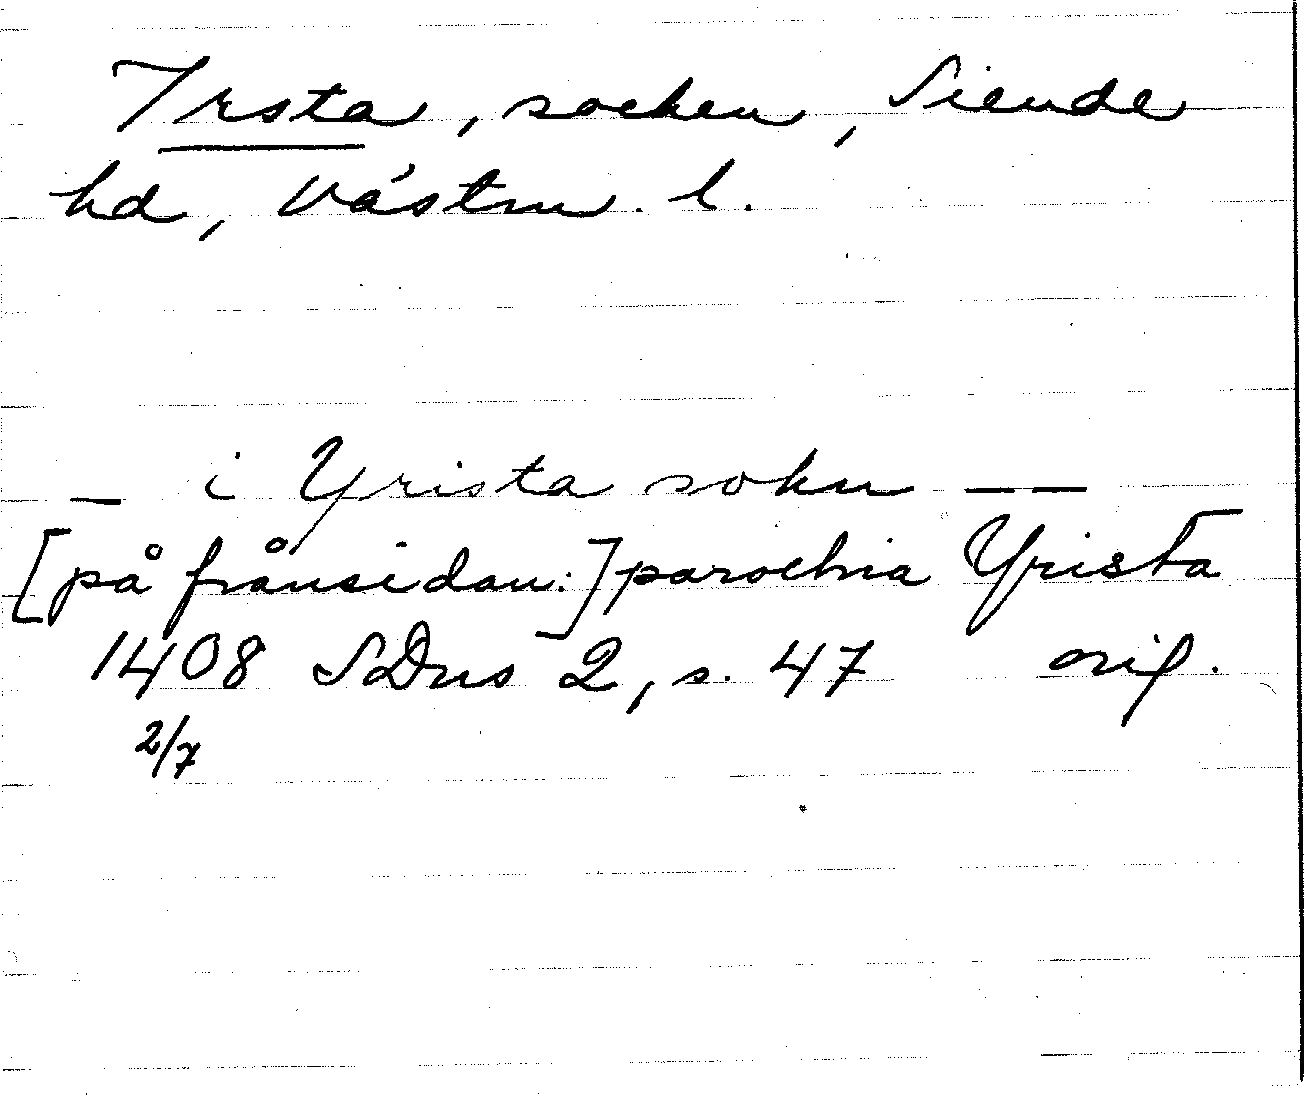 Irsta, socken, Siende
hd, Västm. l.
— i Yrista sokn — —
[på frånsidan:] parochia Yrista
1408 SDns 2, s. 47 orig.
2/7